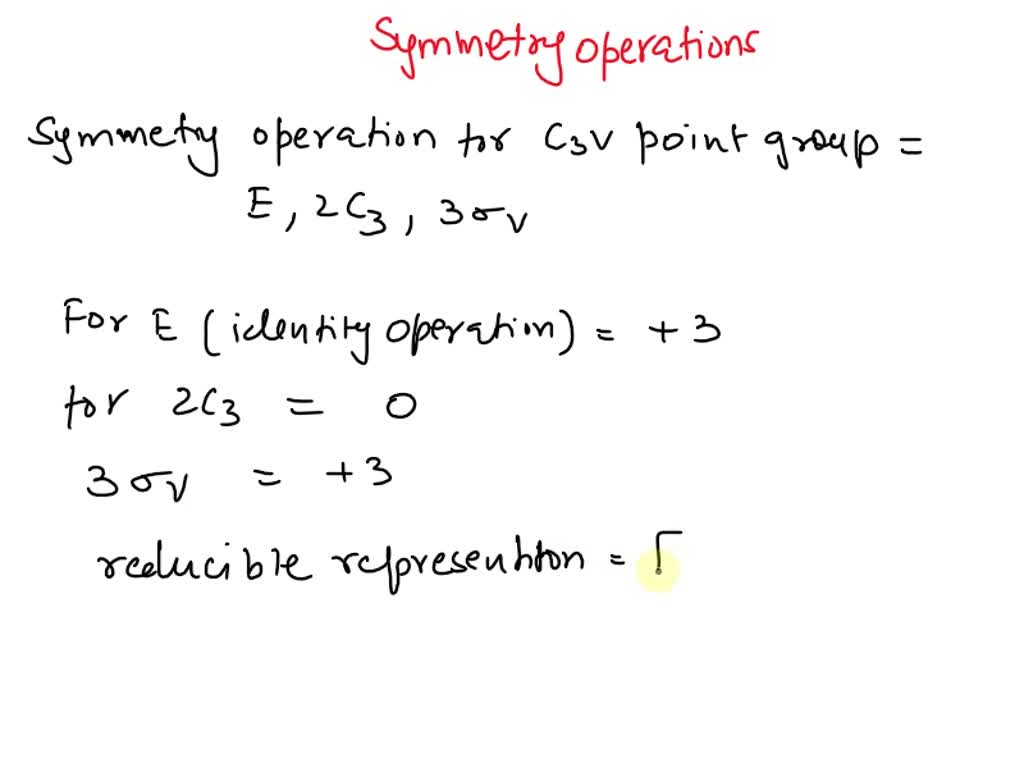 Symmetry operations
Symmetry operation for C3V point group =
E, 2C3, 3σv
For E (identity operation) = +3
for 2C3 = 0
3σv = +3
reducible representation = Γ